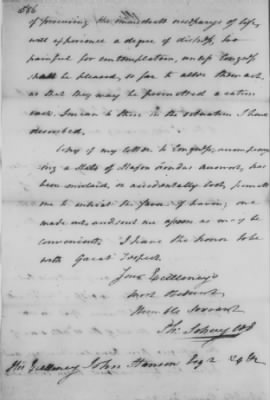 586
of procuring the immediate necessary's of life,
will experience a degree of distress, too
painful for contemplation, unless Congress
shall be pleased, so far to alter their act,
as that they may be permitted a ration
each. I mean to those in the situation I have
described.
Copy of my letter to Congress, accompany
ing a State of Major Fondas account, has
been mislaid, or accidentally lost, permit
me to intreat the favor of having one
made out, and sent me as soon as may be
convenient. I have the honor to be
with Great respect
Your Excellency's
most Obedient
Humble Servant
His Excellency John Hanson Esqr